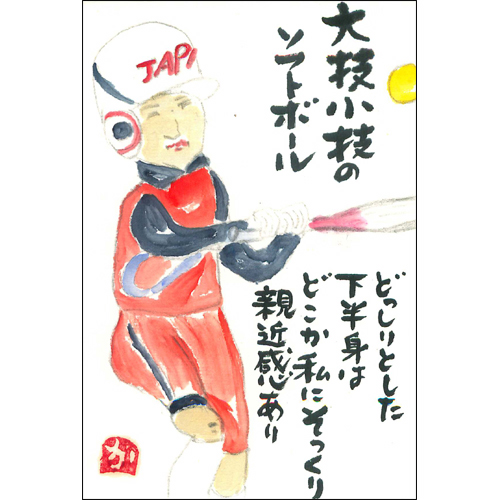 大技小技の
ソフトボール
JAPA
どっしりとした
下半身は
どこか私にそっくり
親近感あり
か